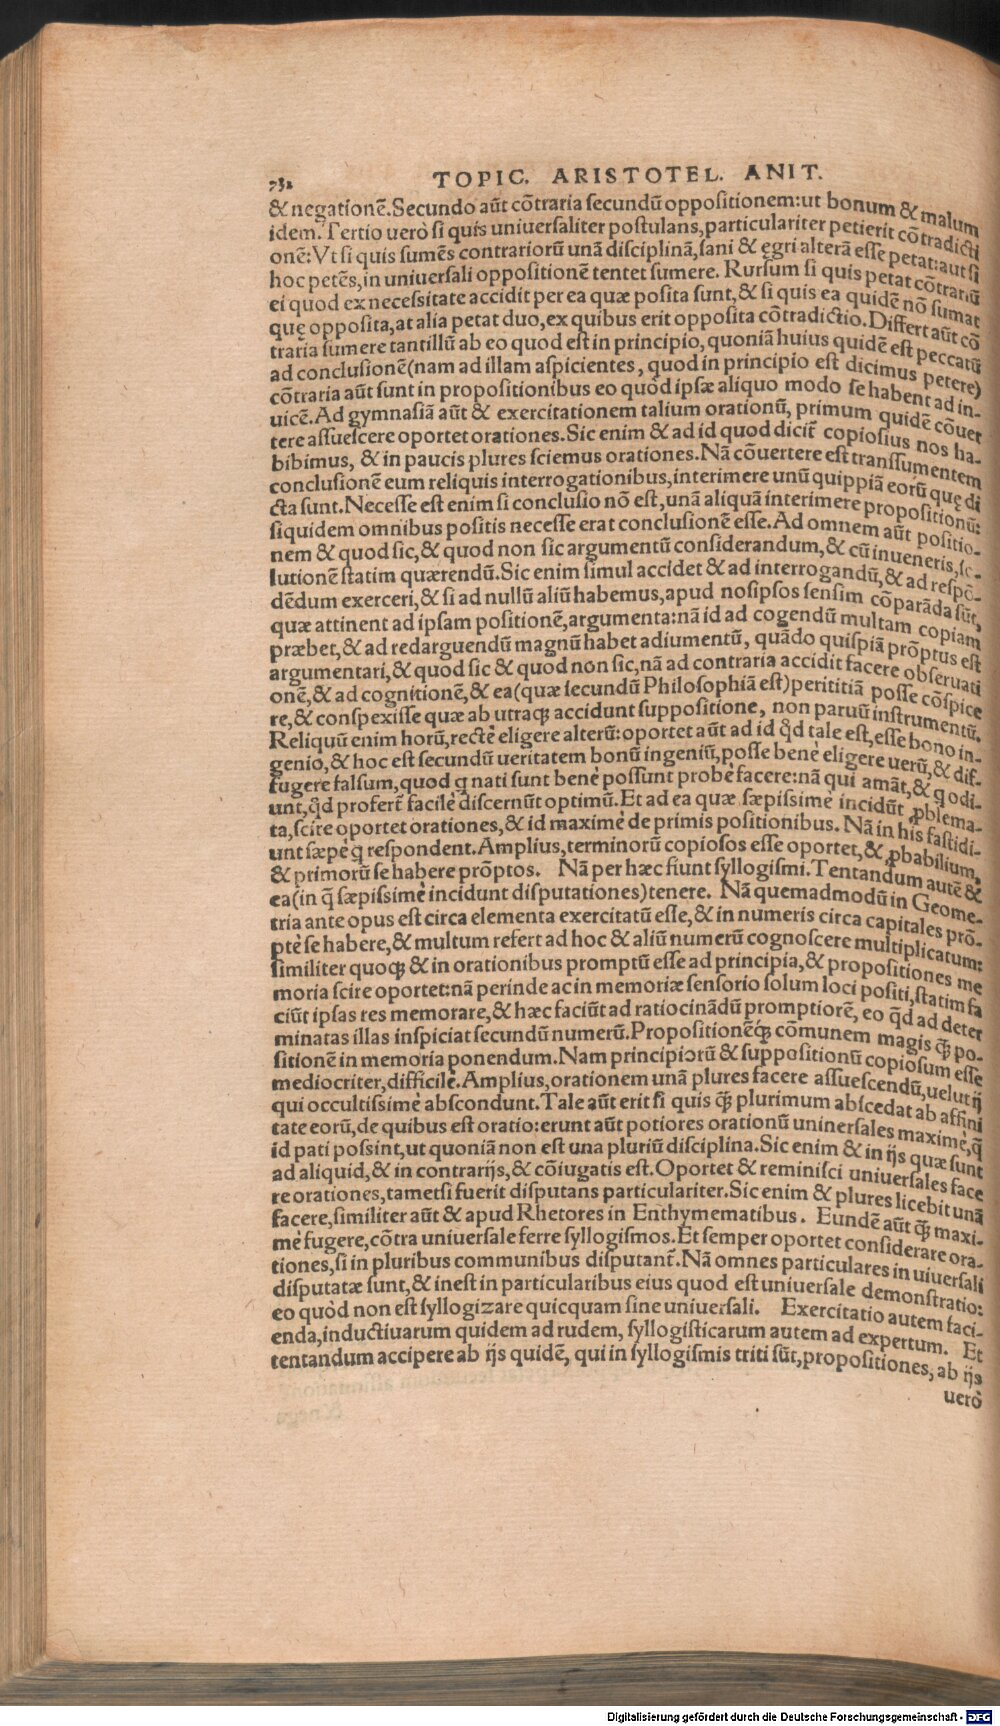 732 TOPIC. ARISTOTEL. ANIT.
& negationē. Secundo aūt cōtraria secundū oppositionem: ut bonum & malum
idem. Tertio uerò si quis uniuersaliter postulans, particulariter petierit cōtradicti
onē: Vt si quis sumēs contrariorū unā disciplinā, sani & ęgri alterā esse petat: aut si
hoc petēs, in uniuersali oppositionē tentet sumere. Rursum si quis petat cōtrariū
ei quod ex necessitate accidit per ea quæ posita sunt, & si quis ea quidē nō sumat
quę opposita, at alia petat duo, ex quibus erit opposita cōtradictio. Differt aūt cō
traria sumere tantillū ab eo quod est in principio, quoniā huius quidē est peccatū
ad conclusionē (nam ad illam aspicientes, quod in principio est dicimus petere)
cōtraria aūt sunt in propositionibus eo quòd ipsæ aliquo modo se habent ad in-
uicē. Ad gymnasiā aūt & exercitationem talium orationū, primum quidē cōuer
tere assuescere oportet orationes. Sic enim & ad id quod dicit̄ copiosius nos ha-
bibimus, & in paucis plures sciemus orationes. Nā cōuertere est transsumentem
conclusionē eum reliquis interrogationibus, interimere unū quippiā eorū quę di
cta sunt. Necesse est enim si conclusio nō est, unā aliquā interimere propositionū:
siquidem omnibus positis necesse erat conclusionē esse. Ad omnem aūt positio-
nem & quod sic, & quod non sic argumentū considerandum, & cū inueneris, so-
lutionē statim quærendū. Sic enim simul accidet & ad interrogandū, & ad respō-
dēdum exerceri, & si ad nullū aliū habemus, apud nosipsos sensim cōparāda sūt,
quæ attinent ad ipsam positionē, argumenta: nā id ad cogendū multam copiam
præbet, & ad redarguendū magnū habet adiumentū, quādo quispiā prōptus est
argumentari, & quod sic & quod non sic, nā ad contraria accidit facere obseruati
onē, & ad cognitionē, & ea (quæ secundū Philosophiā est) perititiā posse cōspice
re, & conspexisse quæ ab utraq; accidunt suppositione, non paruū instrumentū.
Reliquū enim horū, rectè eligere alterū: oportet aūt ad id q̄d tale est, esse bono in-
genio, & hoc est secundū ueritatem bonū ingeniū, posse benè eligere uerū, & dif-
fugere falsum, quod q nati sunt benè possunt probè facere: nā qui amāt, & q odi-
unt, q̄d profert̄ facilè discernūt optimū. Et ad ea quæ sæpissimè incidūt ꝓblema-
ta, scire oportet orationes, & id maximè de primis positionibus. Nā in his fastidi-
unt sæpè q respondent. Amplius, terminorū copiosos esse oportet, & ꝓbabilium,
& primorū se habere prōptos. Nā per hæc fiunt syllogismi. Tentandum autē &
ea (in q̄ sæpissimè incidunt disputationes) tenere. Nā quemadmodū in Geome-
tria ante opus est circa elementa exercitatū esse, & in numeris circa capitales prō-
ptè se habere, & multum refert ad hoc & aliū numerū cognoscere multiplicatum:
similiter quoq; & in orationibus promptū esse ad principia, & propositiones me
moria scire oportet: nā perinde ac in memoriæ sensorio solum loci positi, statim fa
ciūt ipsas res memorare, & hæc faciūt ad ratiocinādū promptiorē, eo q̄d ad deter
minatas illas inspiciat secundū numerū. Propositionēq; cōmunem magis q̄ɜ po-
sitionē in memoria ponendum. Nam principiorū & suppositionū copiosum esse
mediocriter, difficilè. Amplius, orationem unā plures facere assuescendū, uelut ij
qui occultissimè abscondunt. Tale aūt erit si quis q̄ɜ plurimum abscedat ab affini
tate eorū, de quibus est oratio: erunt aūt potiores orationū uninersales maximè, q̄
id pati possint, ut quoniā non est una pluriū disciplina. Sic enim & in ijs quæ sunt
ad aliquid, & in contrarijs, & cōiugatis est. Oportet & reminisci uniuersales face
re orationes, tametsi fuerit disputans particulariter. Sic enim & plures licebit unā
facere, similiter aūt & apud Rhetores in Enthymematibus. Eundē aūt q̄ɜ maxi-
mè fugere, cōtra uniuersale ferre syllogismos. Et semper oportet considerare ora-
tiones, si in pluribus communibus disputant̄. Nā omnes particulares in uiuersali
disputatæ sunt, & inest in particularibus eius quod est uniuersale demonstratio:
eo quòd non est syllogizare quicquam sine uniuersali. Exercitatio autem faci-
enda, inductiuarum quidem ad rudem, syllogisticarum autem ad expertum. Et
tentandum accipere ab ijs quidē, qui in syllogismis triti sūt, propositiones, ab ijs
uerò
Digitalisierung gefördert durch die Deutsche Forschungsgemeinschaft - DFG